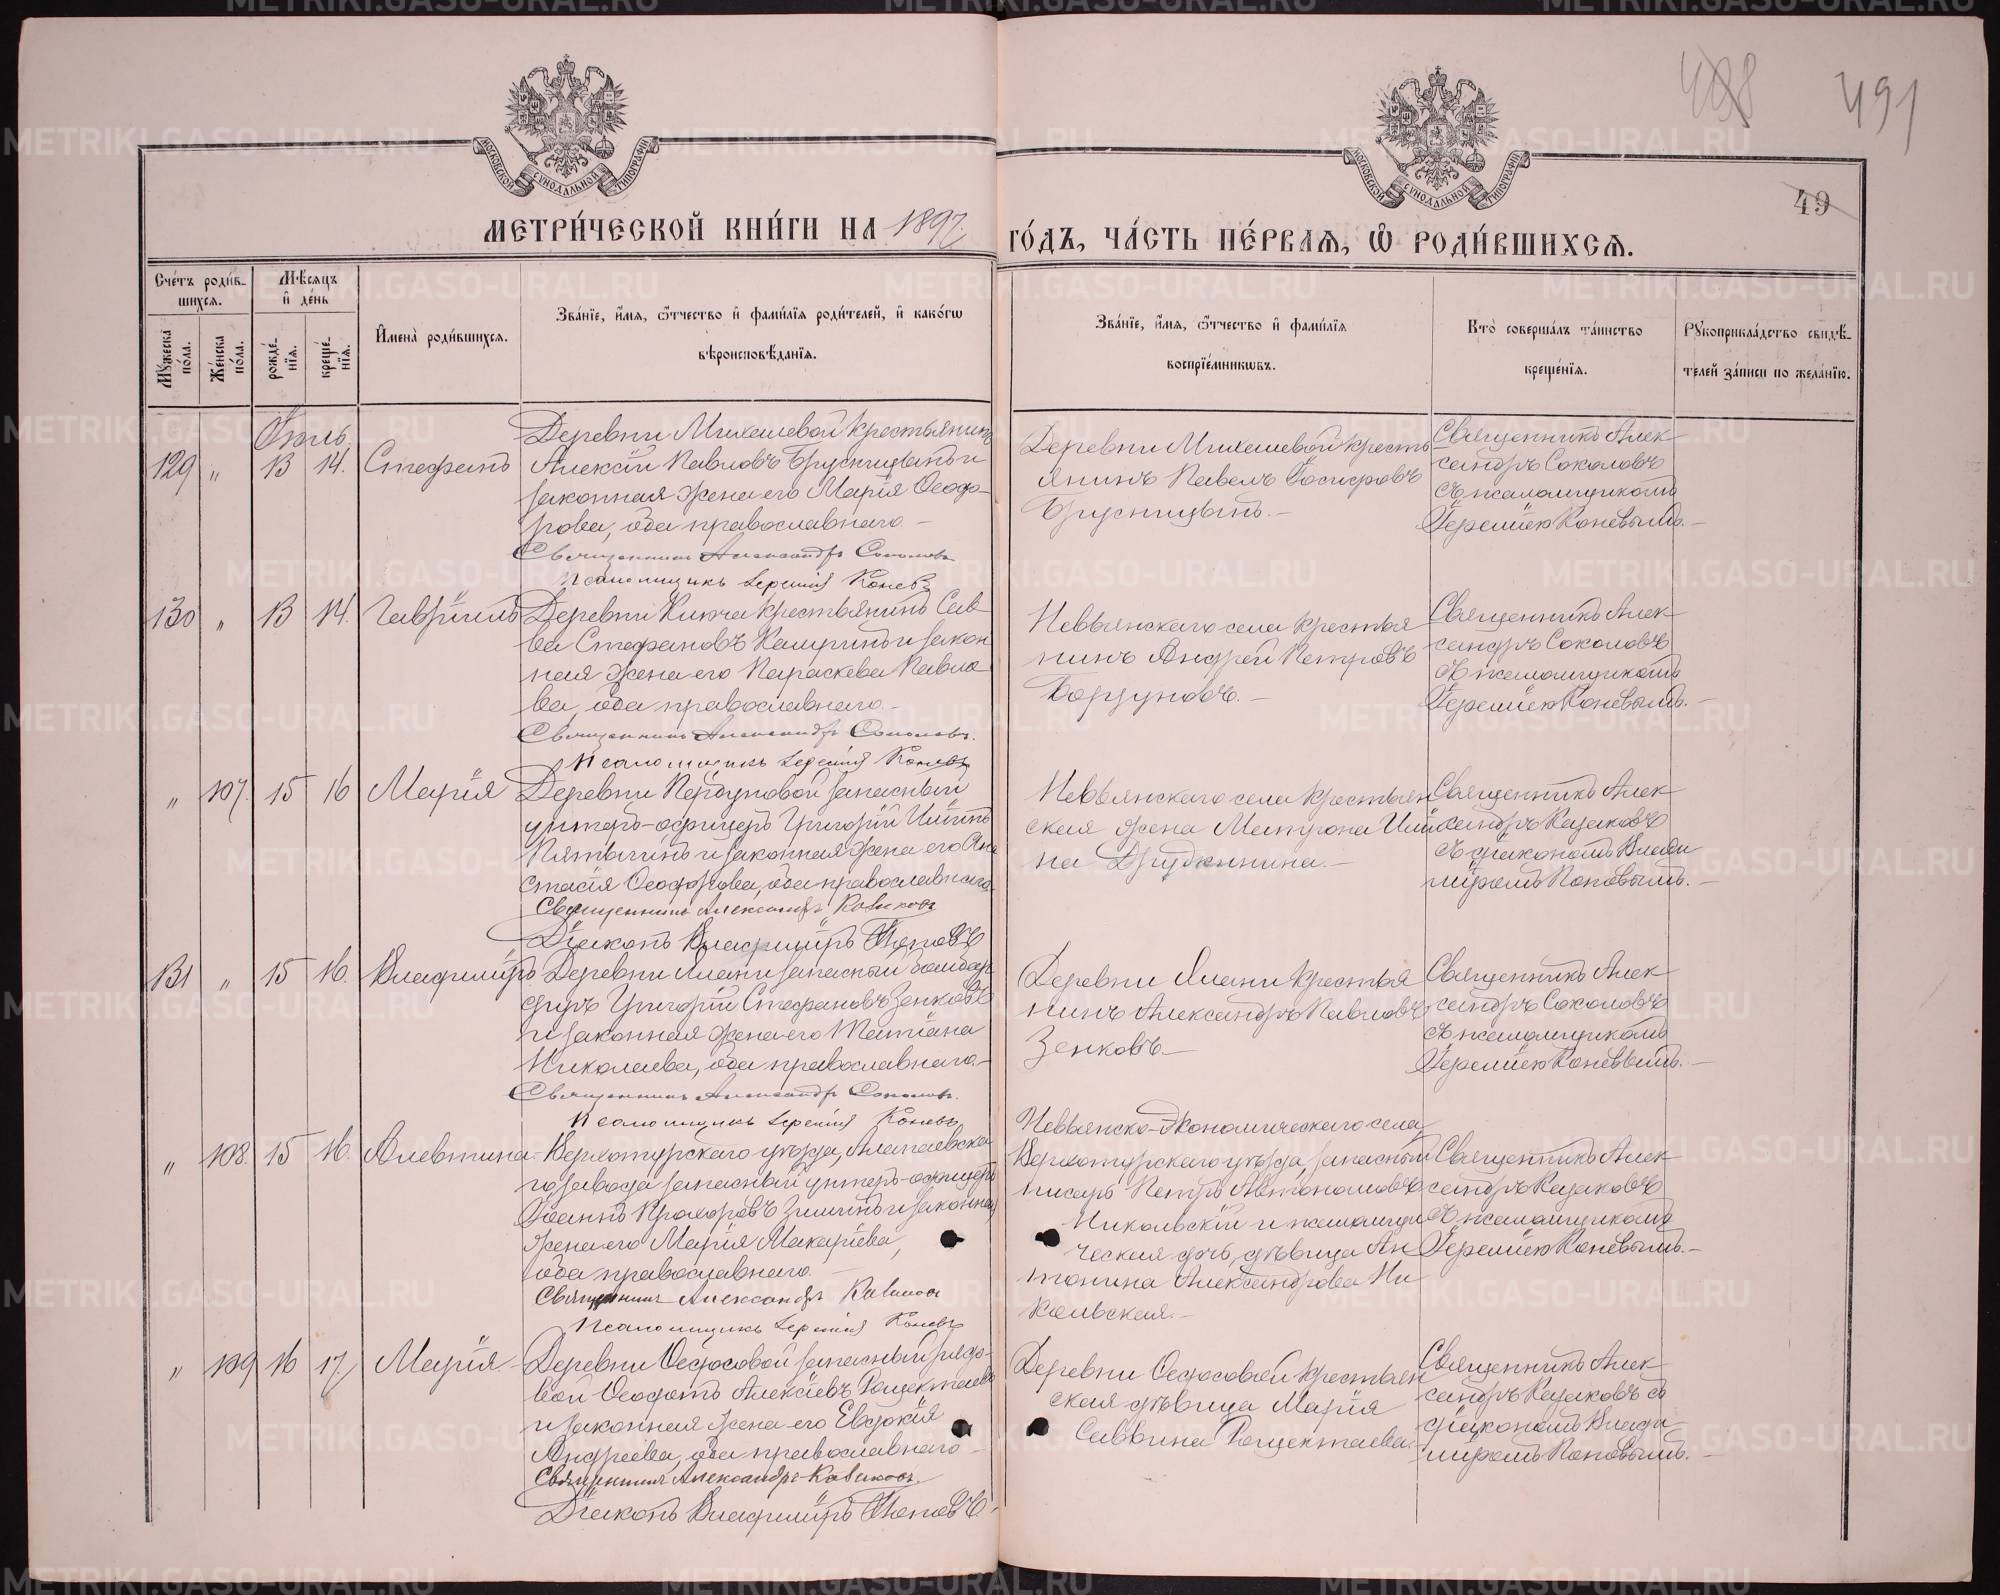 488
491
49
МОСКОВСКОЙ СУНОДАЛЬНОЙ ТИПОГРАФІИ
МОСКОВСКОЙ СУНОДАЛЬНОЙ ТИПОГРАФІИ
МЕТРИ́ЧЕСКОЙ КНИ́ГИ НА 1897. ГО́ДЪ, ЧА́СТЬ ПЕ́РВАѦ, Ѡ҆ РОДИ́ВШИХСѦ.
Сче́тъ роди́в-
шихсѧ.
Мѣ́сѧцъ
и҆ де́нь
Мꙋ́жеска по́ла.
Же́нска по́ла.
рожде́-нїѧ.
креще́-нїѧ.
И҆мена̀ роди́вшихсѧ.
Зва́нїе, и҆́мѧ, ѻ҆́тчество и҆ фами́лїѧ роди́телей, и҆ како́гѡ
вѣроисповѣ́данїѧ.
Зва́нїе, и҆́мѧ, ѻ҆́тчество и҆ фами́лїѧ
воспрїе́мникѡвъ.
Кто̀ соверша́лъ та́инство
креще́нїѧ.
Рꙋкоприкла́дство свидѣ́-
телей за́писи по жела́нїю.
Іюль.
129 " 13 14. Стефанъ
Деревни Михешевой крестьянинъ
Алексій Павловъ Брусницынъ и
законная жена его Марія Ѳеодо-
рова, оба православнаго. —
Священникъ Александръ Соколовъ
Псаломщикъ Іеремія Коневъ
Деревни Михешевой кресть
янинъ Павелъ
Брусницынъ. —
Священникъ Алек-
сандръ Соколовъ
съ псаломщикомъ
Іереміею Коневымъ. —
130 " 13 14. Гавріилъ
Деревни Ключа крестьянинъ Сав-
ва Стефановъ и закон
ная жена его Параскева Павло
ва, оба православнаго. —
Священникъ Александръ Соколовъ.
Псаломщикъ Іеремія Коневъ
Невьянскаго села крестья
нинъ Андрей Петровъ
Борзуновъ. —
Священникъ Алек-
сандръ Соколовъ
съ псаломщикомъ
Іереміею Коневымъ. —
" 107. 15 16 Марія
Деревни запасный
унтеръ-офицеръ Григорій Иліинъ
и законная жена его Ана
стасія Ѳеодорова, оба православнаго.
Священникъ Александръ Казаковъ
Діаконъ Владиміръ Поповъ
Невьянскаго села крестьян
ская жена Матрона Иліи
на —
Священникъ Алек-
сандръ Казаковъ
съ діакономъ Влади
міромъ Поповымъ. —
131 " 15 16. Владиміръ
Деревни запасный бомбар
диръ Григорій Стефановъ Зенковъ
и законная жена его Татіана
Николаева, оба православнаго. —
Священникъ Александръ Соколовъ.
Псаломщикъ Іеремія Коневъ
Деревни крестья
нинъ Александръ Павловъ
Зенковъ. —
Священникъ Алек-
сандръ Соколовъ
съ псаломщикомъ
Іереміею Коневымъ. —
" 108. 15 16. Алевтина
Верхотурскаго уѣзда, Алапаевска
го завода запасный унтеръ-офицеръ
Іоаннъ Прохоровъ и законная
жена его Марія Макаріева,
оба православнаго. —
Священникъ Александръ Казаковъ
Псаломщикъ Іеремія Коневъ
Невьянско-Экономическаго села
Верхотурскаго уѣзда, запасный
писарь Петръ Автономовъ
Никольскій и псаломщи
ческая дочь, дѣвица Ан
тонина Александрова Ни
кольская. —
Священникъ Алек-
сандръ Казаковъ
съ псаломщикомъ
Іереміею Коневымъ. —
" 109 16 17. Марія
Деревни Ѳедосовой запасный рядо-
вой Ѳеодотъ Алексіевъ Ращектаевъ
и законная жена его Евдокія
Андреева, оба православнаго —
Священникъ Александръ Казаковъ.
Діаконъ Владиміръ Поповъ.
Деревни Ѳедосовой крестьян
ская дѣвица Марія
Саввина Ращектаева.
Священникъ Алек-
сандръ Казаковъ съ
діакономъ Влади-
міромъ Поповымъ. —